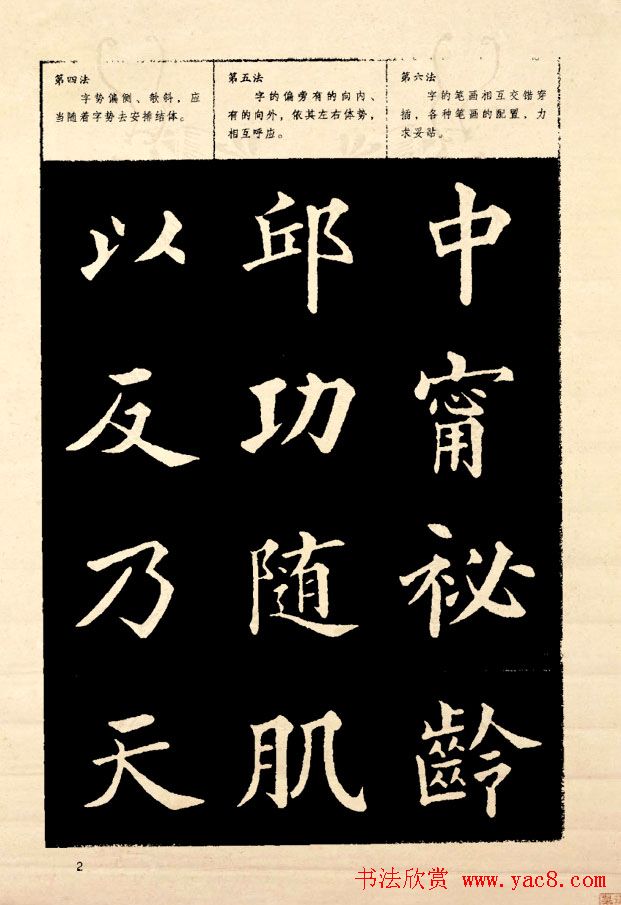 第四法
字势偏侧、欹斜，应
当随着字势去安排结体。
第五法
字的偏旁有的向内、
有的向外，依其左右体势，
相互呼应。
第六法
字的笔画相互交错穿
插，各种笔画的配置，力
求妥贴。
以
反
乃
天
邱
功
随
肌
中
甯
祕
齡
2
书法欣赏 www.yac8.com